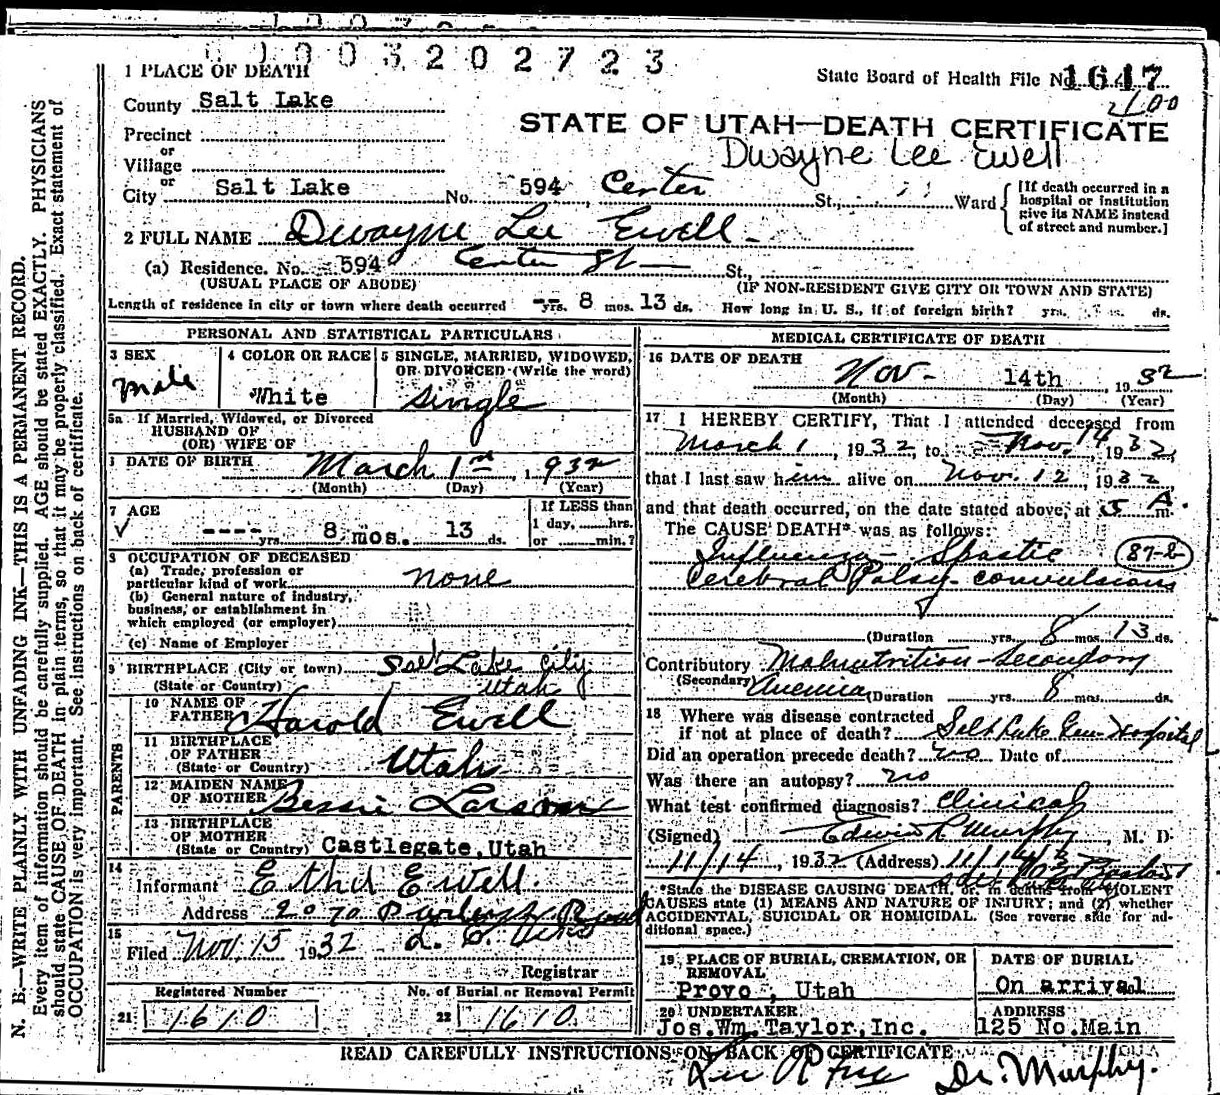 0 1 0 0 3 2 0 2 7 2 3
1 PLACE OF DEATH
State Board of Health File No. 1647
County Salt Lake
STATE OF UTAH—DEATH CERTIFICATE
Dwayne Lee Ewell
Precinct
or
Village
or
City Salt Lake No. 594 Center St., Ward
[If death occurred in a hospital or institution give its NAME instead of street and number.]
2 FULL NAME Dwayne Lee Ewell
(a) Residence. No. 594 Center St St.,
(USUAL PLACE OF ABODE) (IF NON-RESIDENT GIVE CITY OR TOWN AND STATE)
Length of residence in city or town where death occurred -- yrs. 8 mos. 13 ds. How long in U. S., if of foreign birth? yrs. mos. ds.
PERSONAL AND STATISTICAL PARTICULARS
3 SEX
Male
4 COLOR OR RACE
White
5 SINGLE, MARRIED, WIDOWED, OR DIVORCED (Write the word)
Single
5a If Married, Widowed, or Divorced
HUSBAND OF
(OR) WIFE OF
6 DATE OF BIRTH March 1st, 1932
(Month) (Day) (Year)
7 AGE
---- yrs. 8 mos. 13 ds.
If LESS than
1 day, hrs.
or min.?
8 OCCUPATION OF DECEASED
(a) Trade, profession or
particular kind of work none
(b) General nature of industry,
business, or establishment in
which employed (or employer)
(c) Name of Employer
9 BIRTHPLACE (City or town) Salt Lake City
(State or Country) Utah
PARENTS
10 NAME OF
FATHER Harold Ewell
11 BIRTHPLACE
OF FATHER
(State or Country) Utah
12 MAIDEN NAME
OF MOTHER Bessie Larson
13 BIRTHPLACE
OF MOTHER
(State or Country) Castlegate, Utah
14
Informant Ethel Ewell.
Address 2070
15
Filed Nov 15 1932
Registrar
Registered Number
21 1610
No. of Burial or Removal Permit
22 1610
MEDICAL CERTIFICATE OF DEATH
16 DATE OF DEATH
Nov- 14th, 1932
(Month) (Day) (Year)
17 I HEREBY CERTIFY, That I attended deceased from
March 1, 1932, to Nov. 14 1932,
that I last saw him alive on Nov. 12, 1932,
and that death occurred, on the date stated above, at 5 A m.
The CAUSE DEATH* was as follows:
Influenza - Spastic 87-b
Cerebral Palsy - convulsions
(Duration yrs. 8 mos. 13 ds.
Contributory Malnutrition - Secondary
(Secondary) Anemia (Duration yrs. 8 mos. ds.
18 Where was disease contracted
if not at place of death? Salt Lake Gen. Hospital
Did an operation precede death? no Date of
Was there an autopsy? no
What test confirmed diagnosis? Clinical
(Signed) Edwin R Murphy M. D.
11/14, 1932 (Address)
*State the DISEASE CAUSING DEATH, or, in deaths from VIOLENT
CAUSES state (1) MEANS AND NATURE OF INJURY; and (2) whether
ACCIDENTAL, SUICIDAL OR HOMICIDAL. (See reverse side for ad-
ditional space.)
19 PLACE OF BURIAL, CREMATION, OR
REMOVAL
Provo, Utah
DATE OF BURIAL
On arrival
20 UNDERTAKER
Jos.Wm.Taylor,Inc.
ADDRESS
125 No.Main
READ CAREFULLY INSTRUCTIONS ON BACK OF CERTIFICATE
Dr. Murphy.
N. B.—WRITE PLAINLY WITH UNFADING INK—THIS IS A PERMANENT RECORD.
Every item of information should be carefully supplied. AGE should be stated EXACTLY. PHYSICIANS
should state CAUSE OF DEATH in plain terms, so that it may be properly classified. Exact statement of
OCCUPATION is very important. See instructions on back of certificate.